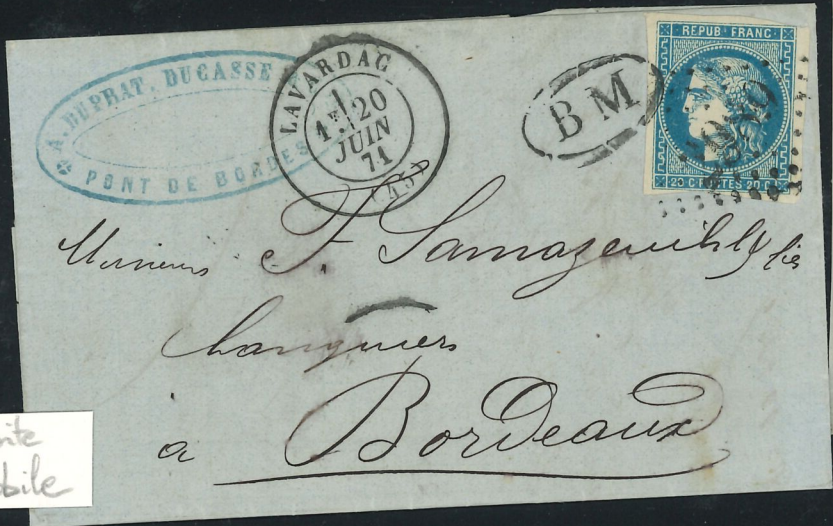 A. DUPRAT. DUCASSE
PONT DE BORDES
LAVARDAC
1E
20
JUIN
71
BM
REPUB. FRANC.
20 C POSTES 20 C
Messieurs F. Samazeuilh & fils
banquiers
à Bordeaux
bile